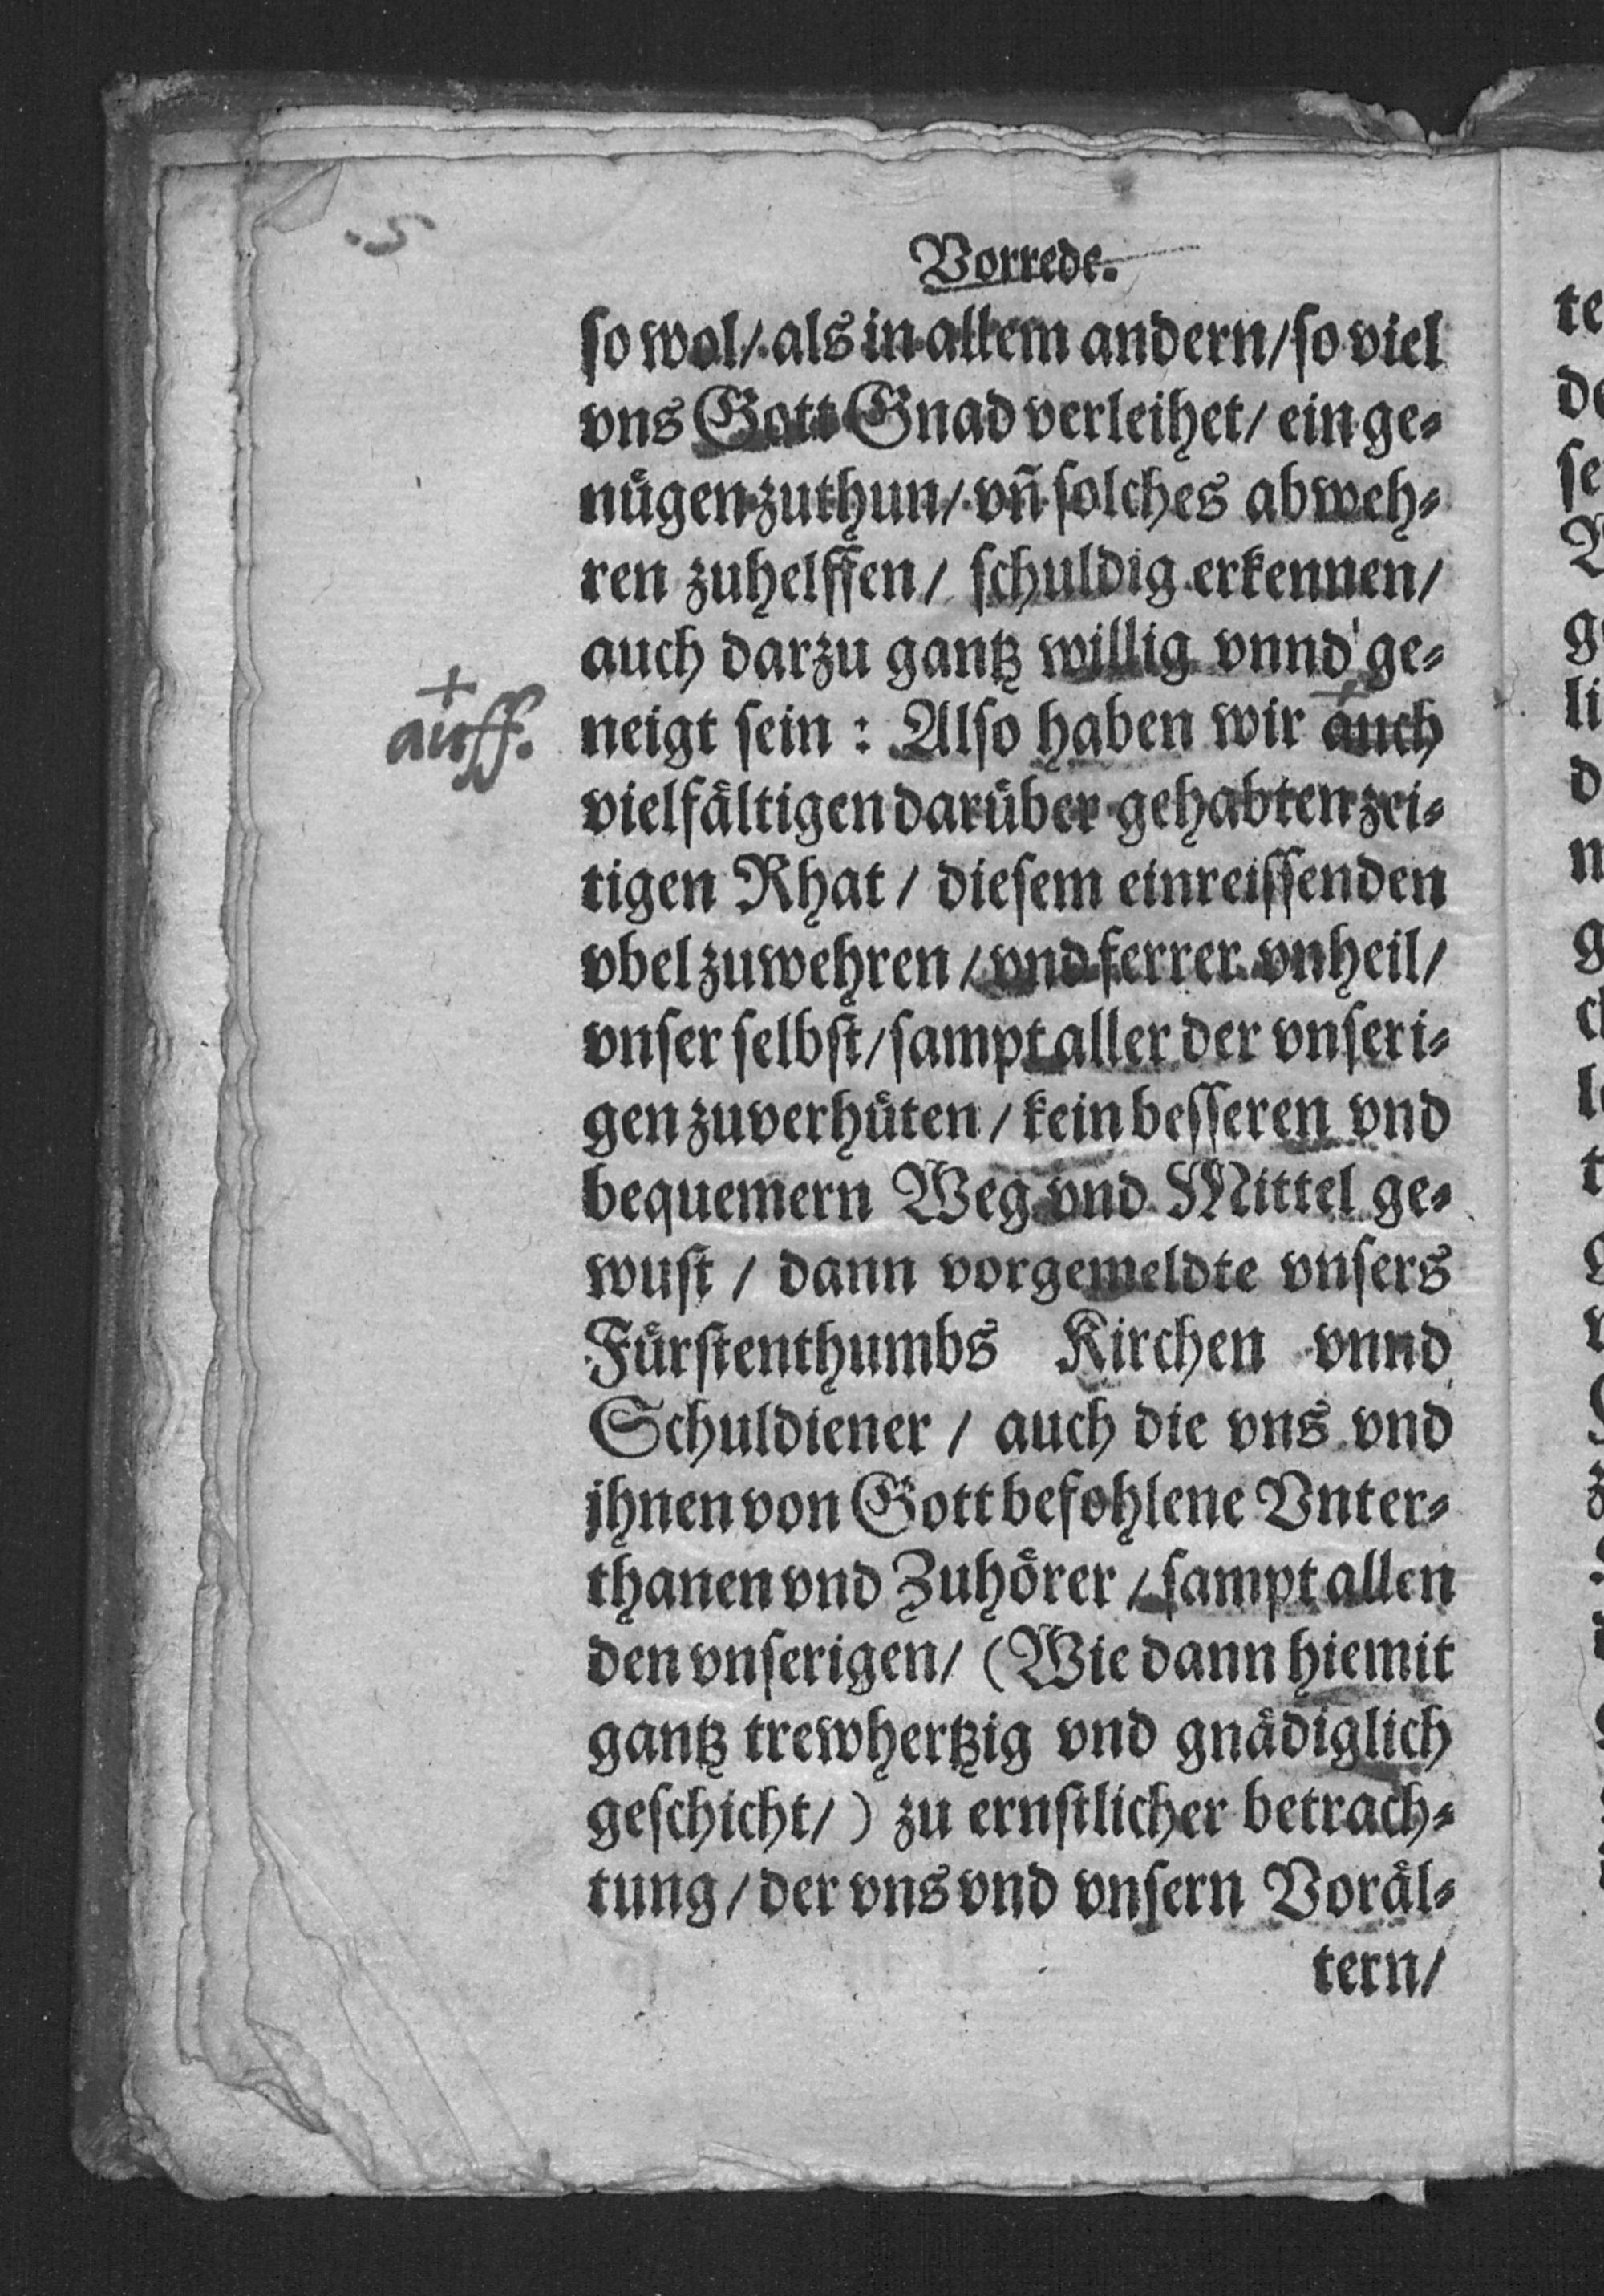 Vorrede.
so wol/ als in allem andern/ so viel
vns Gott Gnad verleihet/ ein ge-
nügen zuthun/ vñ solches abweh-
ren zuhelffen/ schuldig erkennen/
auch darzu gantz willig vnnd ge-
+
auff.
neigt sein : Also haben wir auch
vielfältigen darüber gehabten zei-
tigen Rhat / diesem einreissenden
vbel zuwehren / vnd ferrer vnheil/
vnser selbst/ sampt aller der vnseri-
gen zuverhüten / kein besseren vnd
bequemern Weg vnd Mittel ge-
wust / dann vorgemeldte vnsers
Fürstenthumbs Kirchen vnnd
Schuldiener / auch die vns vnd
jhnen von Gott befohlene Vnter-
thanen vnd Zuhörer / sampt allen
den vnserigen/ (Wie dann hiemit
gantz trewhertzig vnd gnädiglich
geschicht/) zu ernstlicher betrach-
tung / der vns vnd vnsern Voräl-
tern/